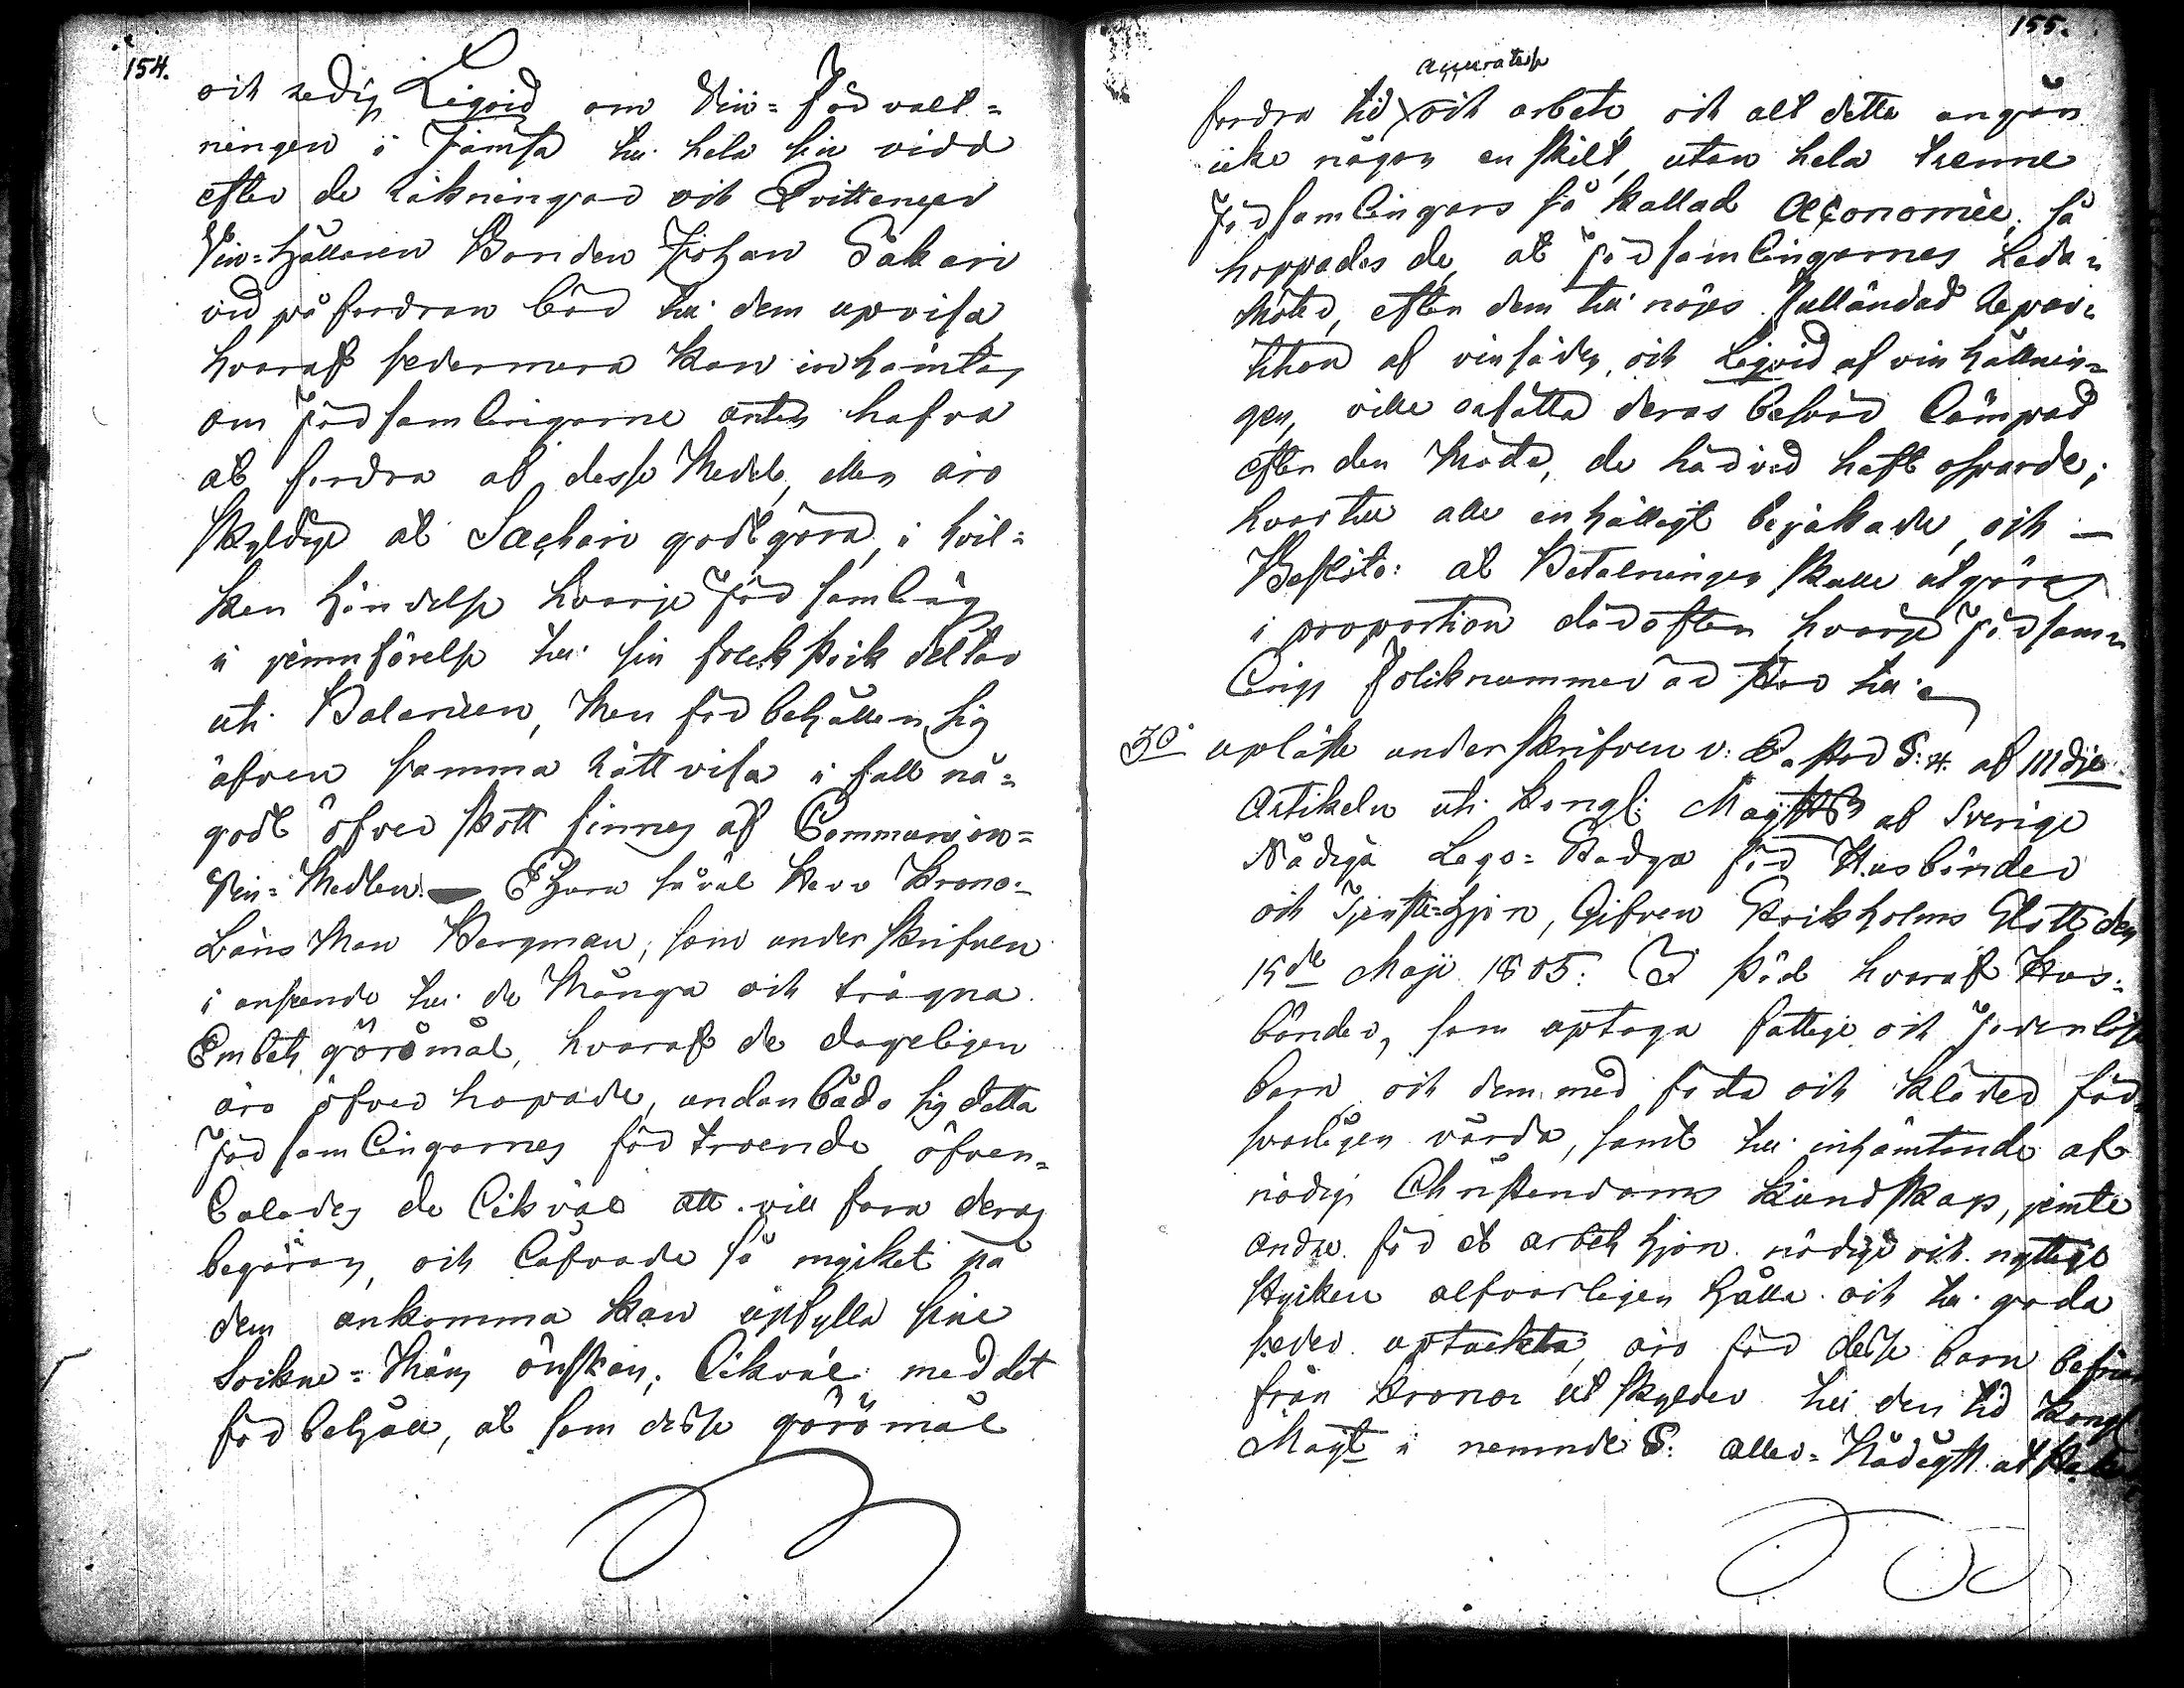 154.
och redig Liqvid om Vin-Förvalt=
ningen i Jämsä till hela sin vidd
efter de räkningar och Qvittenser
Vin-hållaren Bonden Johan Säkäri
vid påfordran bör till dem upvisa
hvaraf sedermera kan inhämtas
om Församlingarne anten hafva
at fordra af desse Medel, eller äro
skyldige at Sachari godtgöra, i hvil=
ken händelse hvarje Församling
i jemnförelse till sin folkstock deltar
uti Balancen, Men förbehåller sig
äfven samma rättvisa i fall nå=
godt öfverskott finnes af Communion-
Vin-Medlen. Ehuru såväl Herr Krono-
LänsMan Bergman, som underskrifven
i anseende till de Många och trägna
Embets göromål, hvaraf de dageligen
äro öfverhopade, undanbådo sig detta
Församlingarnes förtroende, öfver=
talades de likväl att villfara deras
begäran, och låfvade så mycket på
dem ankomma kan upfylla sine
Sockne-Mäns önskan, likväl med det
förbehåll, at som desse göromål
155.
accuratesse
fordra tid och arbete, och alt detta angår
icke någon enskilt, utan hela trenne
Församlingars så kallad Œconomie, så
hoppades de, at Församlingarnes Leda=
Möter, efter dem till nöjes fulländad Repar=
tition af vinsäden, och Liqvid af vinhållnin=
gen, ville ersätta deras besvär lämpad
efter den Möda, de härvid haft ospard;
hvartill alle enhälligt bejakade, och
Beslöto: at Betalningen skulle utgöras
i proportion därefter hvarje Försam=
lings folknummer är stor till.
3o upläste underskrifven v. Pastor § 4. af III dje
Artikeln uti Kongl. Maÿtts af Sverige
Nådiga Lego-Stadga för Husbönder
och Tjenste-Hjon, Gifven Eriksholms Slott den
15de Maji 1805. I stöd hvaraf Hus=
bönder, som uptaga fattige och Foderlöse
barn och dem med föda och kläder för=
svarligen vårda, samt till inhämtande af
nödig Christendoms kundskap, jemte
andre för et arbets hjon nödige och nyttige
stycken alfvarligen hålla och till goda
seder uptuckta, äro för desse barn befriade
från Kronoutskylder till den tid Kongl
Maÿt i nemnde §: aller-Nådigst utstakat